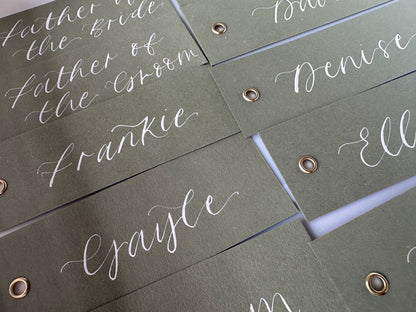 Father of
the Bride
Father of
the Groom
Frankie
Gayle
Denise